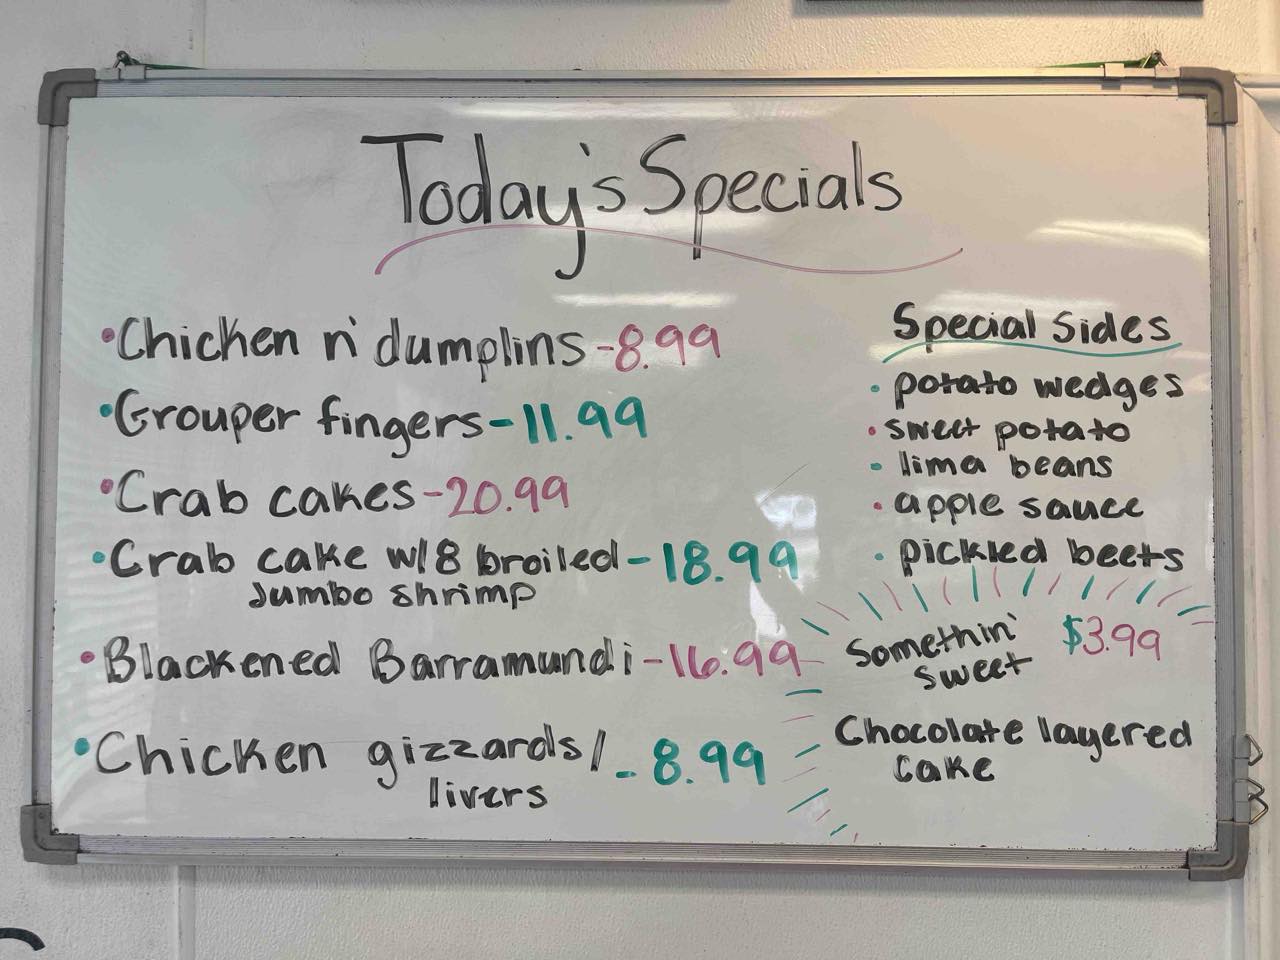 Today's Specials
•Chicken n' dumplins -8.99
•Grouper fingers-11.99
•Crab cakes-20.99
•Crab cake w/8 broiled-18.99
Jumbo shrimp
•Blackened Barramundi-16.99
•Chicken gizzards/ - 8.99
livers
Special Sides
• potato wedges
• sweet potato
• lima beans
• apple sauce
• pickled beets
Somethin' $3.99
sweet
Chocolate layered
cake